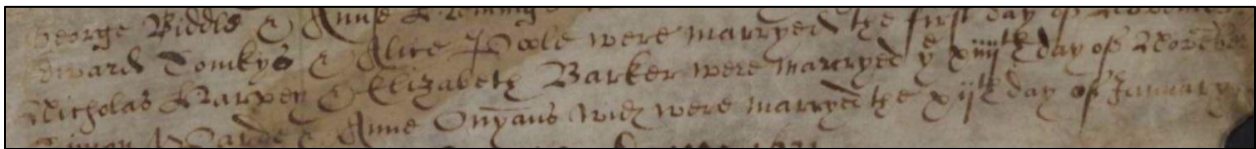 George Biddle & Anne Fleminge
Edward Tomkys & Alice Poole were marryed the first day of November
Nicholas Harpey & Elizabeth Barker were marryed ye xiiijth day of November
Warde & Anne Onyans wid were marryed the xijth day of January